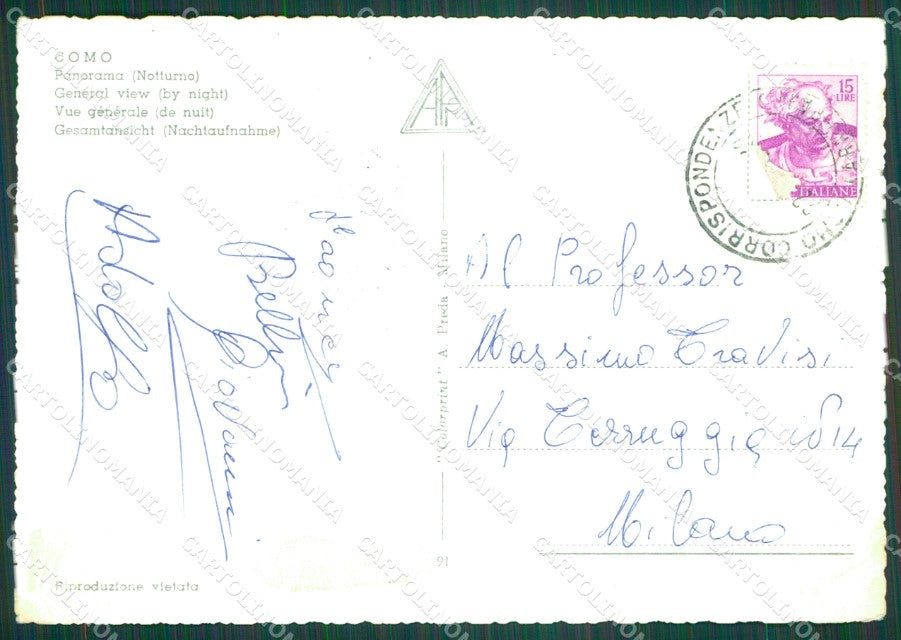 COMO
Panorama (Notturno)
General view (by night)
Vue générale (de nuit)
Gesamtansicht (Nachtaufnahme)
15
LIRE
ITALIANE
CORRISPONDENZE
Al Professor
Massimo Travisi
Via Terruggia N 14
Milano
Giovanni
Adolfo
"Colorprint" A. Preda - Milano
91
Riproduzione vietata
CARTOLINOMANIA